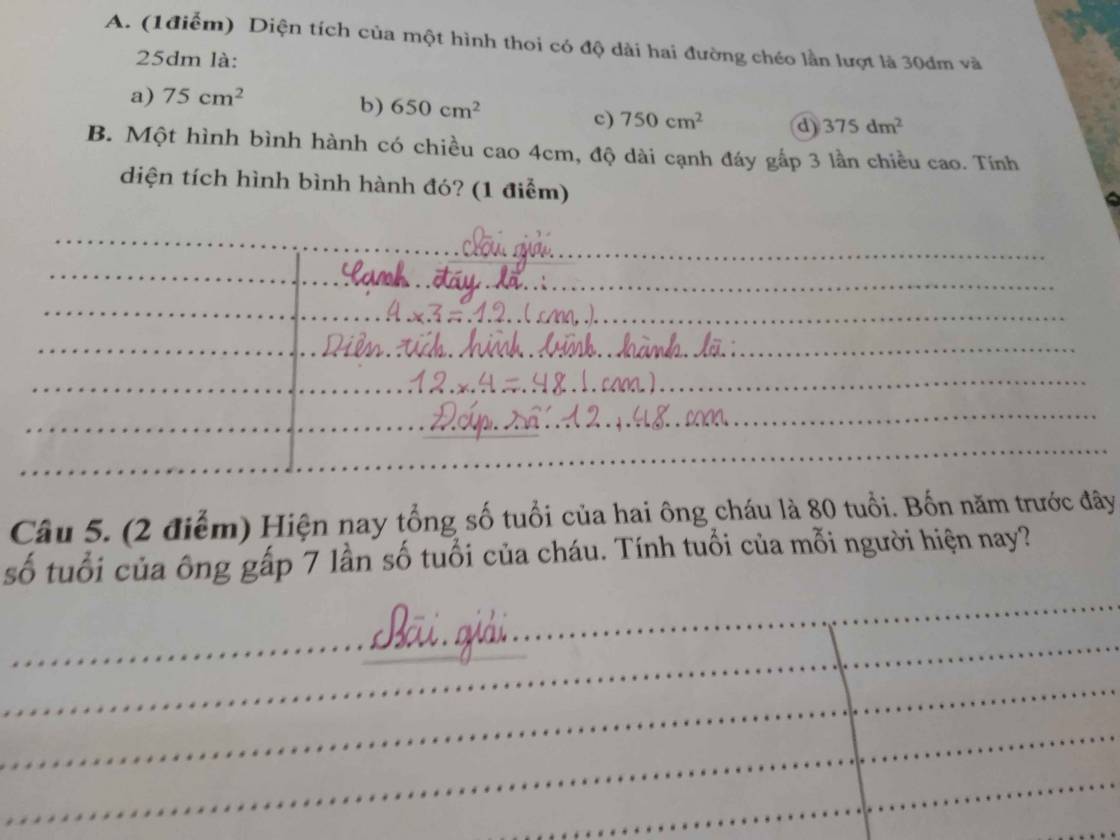 A. (1điểm) Diện tích của một hình thoi có độ dài hai đường chéo lần lượt là 30dm và
25dm là:
a) 75 cm²
b) 650 cm²
c) 750 cm²
d) 375 dm²
B. Một hình bình hành có chiều cao 4cm, độ dài cạnh đáy gấp 3 lần chiều cao. Tính
diện tích hình bình hành đó? (1 điểm)
Bài giải
Cạnh đáy là :
4 x 3 = 12 (cm)
Diện tích hình bình hành là :
12 x 4 = 48 (cm)
Đáp số : 12 , 48 cm
Câu 5. (2 điểm) Hiện nay tổng số tuổi của hai ông cháu là 80 tuổi. Bốn năm trước đây
số tuổi của ông gấp 7 lần số tuổi của cháu. Tính tuổi của mỗi người hiện nay?
Bài giải